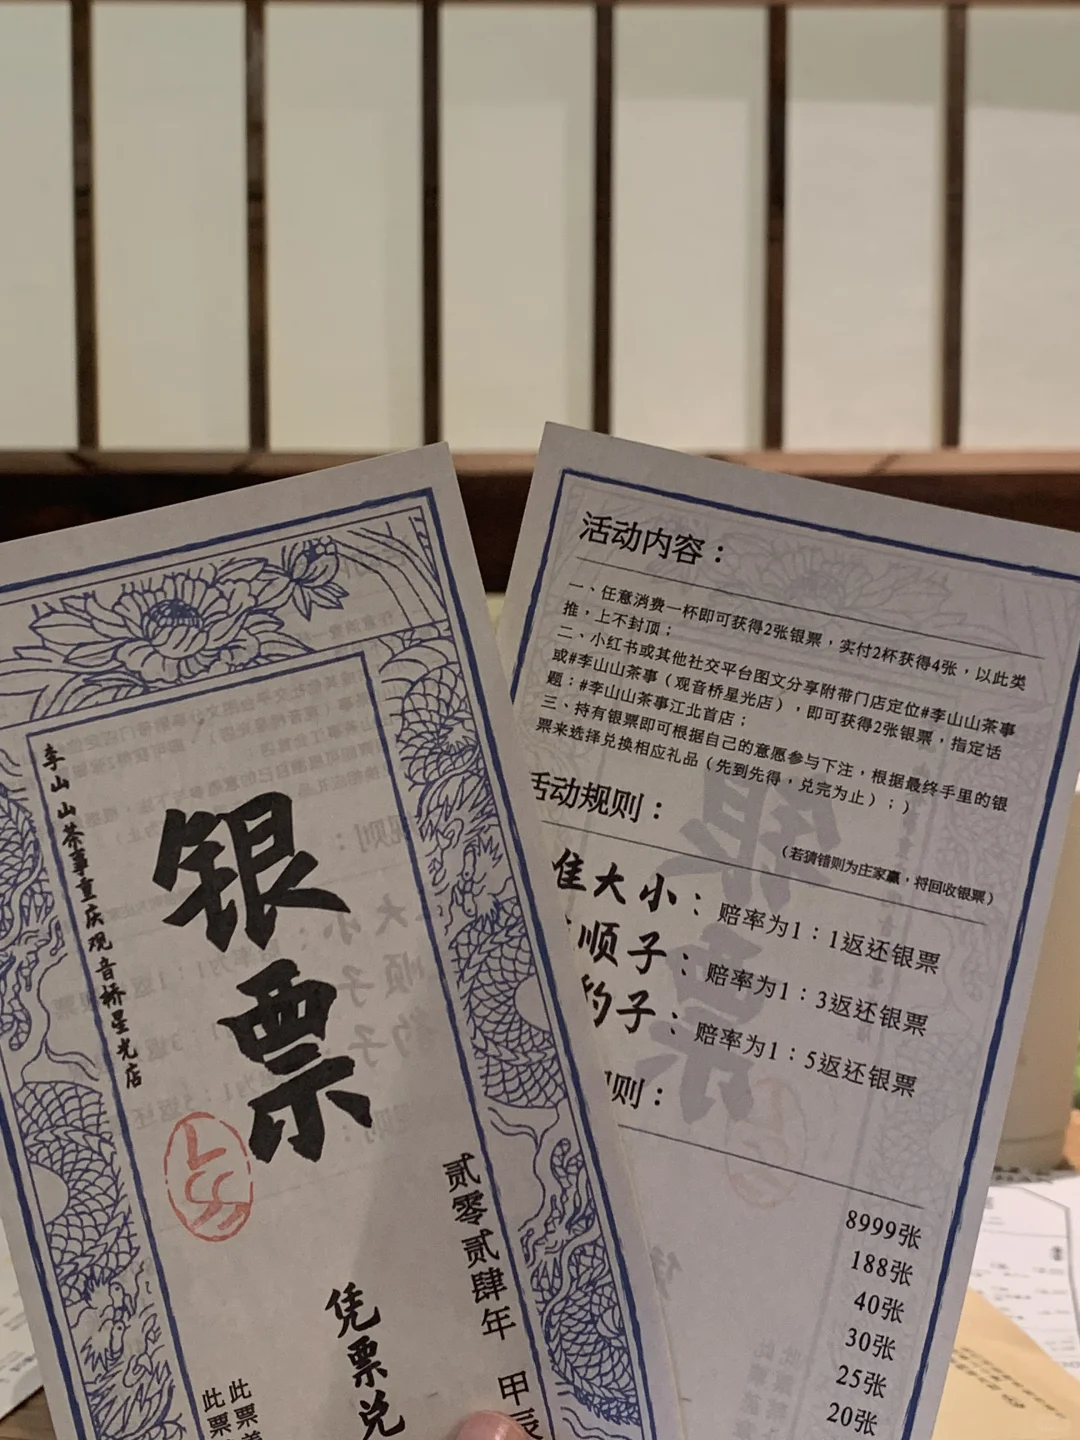 李山山茶事重庆观音桥星光店
银票
LSS
贰零贰肆年 甲辰
凭票兑
此票
此票
活动内容：
一、任意消费一杯即可获得2张银票，实付2杯获得4张，以此类
推，上不封顶；
二、小红书或其他社交平台图文分享附带门店定位#李山山茶事
或#李山山茶事（观音桥星光店），即可获得2张银票，指定话
题：#李山山茶事江北首店；
三、持有银票即可根据自己的意愿参与下注，根据最终手里的银
票来选择兑换相应礼品（先到先得，兑完为止）；）
活动规则：
（若猜错则为庄家赢，将回收银票）
大小：赔率为1：1返还银票
顺子：赔率为1：3返还银票
豹子：赔率为1：5返还银票
则：
8999张
188张
40张
30张
25张
20张